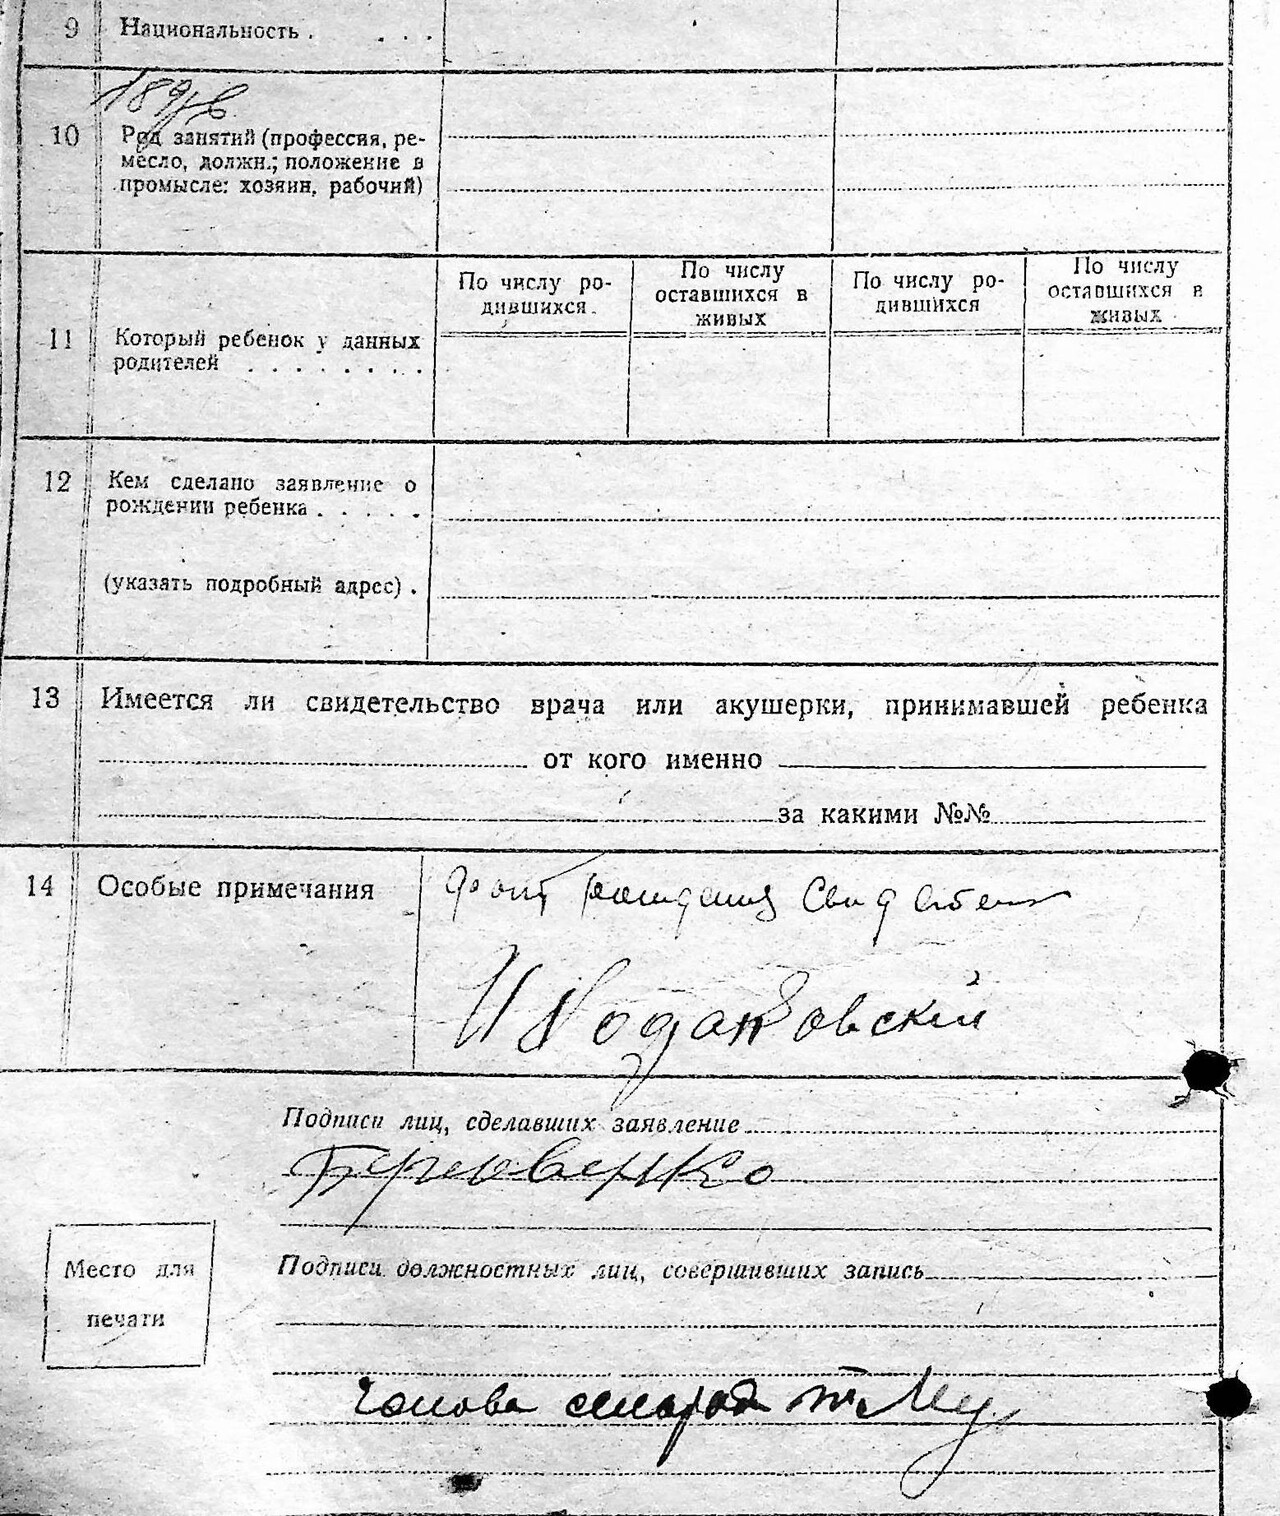 9 Национальность . . . .
10 Род занятий (профессия, ре-
месло, должн.; положение в
промысле: хозяин, рабочий)
По числу ро-
дившихся
По числу
оставшихся в
живых
По числу ро-
дившихся
По числу
оставшихся в
живых
11 Который ребенок у данных
родителей . . . . . . . .
12 Кем сделано заявление о
рождении ребенка . . . . .
(указать подробный адрес) .
13 Имеется ли свидетельство врача или акушерки, принимавшей ребенка
от кого именно
за какими №№
14 Особые примечания
Подписи лиц, сделавших заявление
Подписи должностных лиц, совершивших запись
Место для
печати